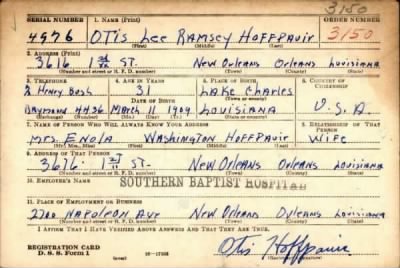 3150
SERIAL NUMBER 1. NAME (Print) ORDER NUMBER
4576 OTis Lee RAMSEY HoffPauir 3150
(First) (Middle) (Last)
2. ADDRESS (Print)
3616 1st ST. New ORleans ORleans Louisiana
(Number and street or R. F. D. number) (Town) (County) (State)
3. TELEPHONE 4. AGE IN YEARS 5. PLACE OF BIRTH 6. COUNTRY OF CITIZENSHIP
% Henry Bosh 31 LAKE Charles
DATE OF BIRTH (Town or county)
Raymond 4436 March 11 1909 Louisiana U.S.A.
(Exchange) (Number) (Mo.) (Day) (Yr.) (State or country)
7. NAME OF PERSON WHO WILL ALWAYS KNOW YOUR ADDRESS 8. RELATIONSHIP OF THAT PERSON
Mrs. Enola Washington HoffPauir Wife
(Mr., Mrs., Miss) (First) (Middle) (Last)
9. ADDRESS OF THAT PERSON
3616 1st ST. New ORleans ORleans Louisiana
(Number and street or R. F. D. number) (Town) (County) (State)
10. EMPLOYER'S NAME
SOUTHERN BAPTIST HOSPITAL
11. PLACE OF EMPLOYMENT OR BUSINESS
2700 Napoleon Ave New ORleans ORleans Louisiana
(Number and street or R. F. D. number) (Town) (County) (State)
I AFFIRM THAT I HAVE VERIFIED ABOVE ANSWERS AND THAT THEY ARE TRUE.
REGISTRATION CARD
D. S. S. Form 1 16-17105 Otis Hoffpauir
(Registrant's signature)